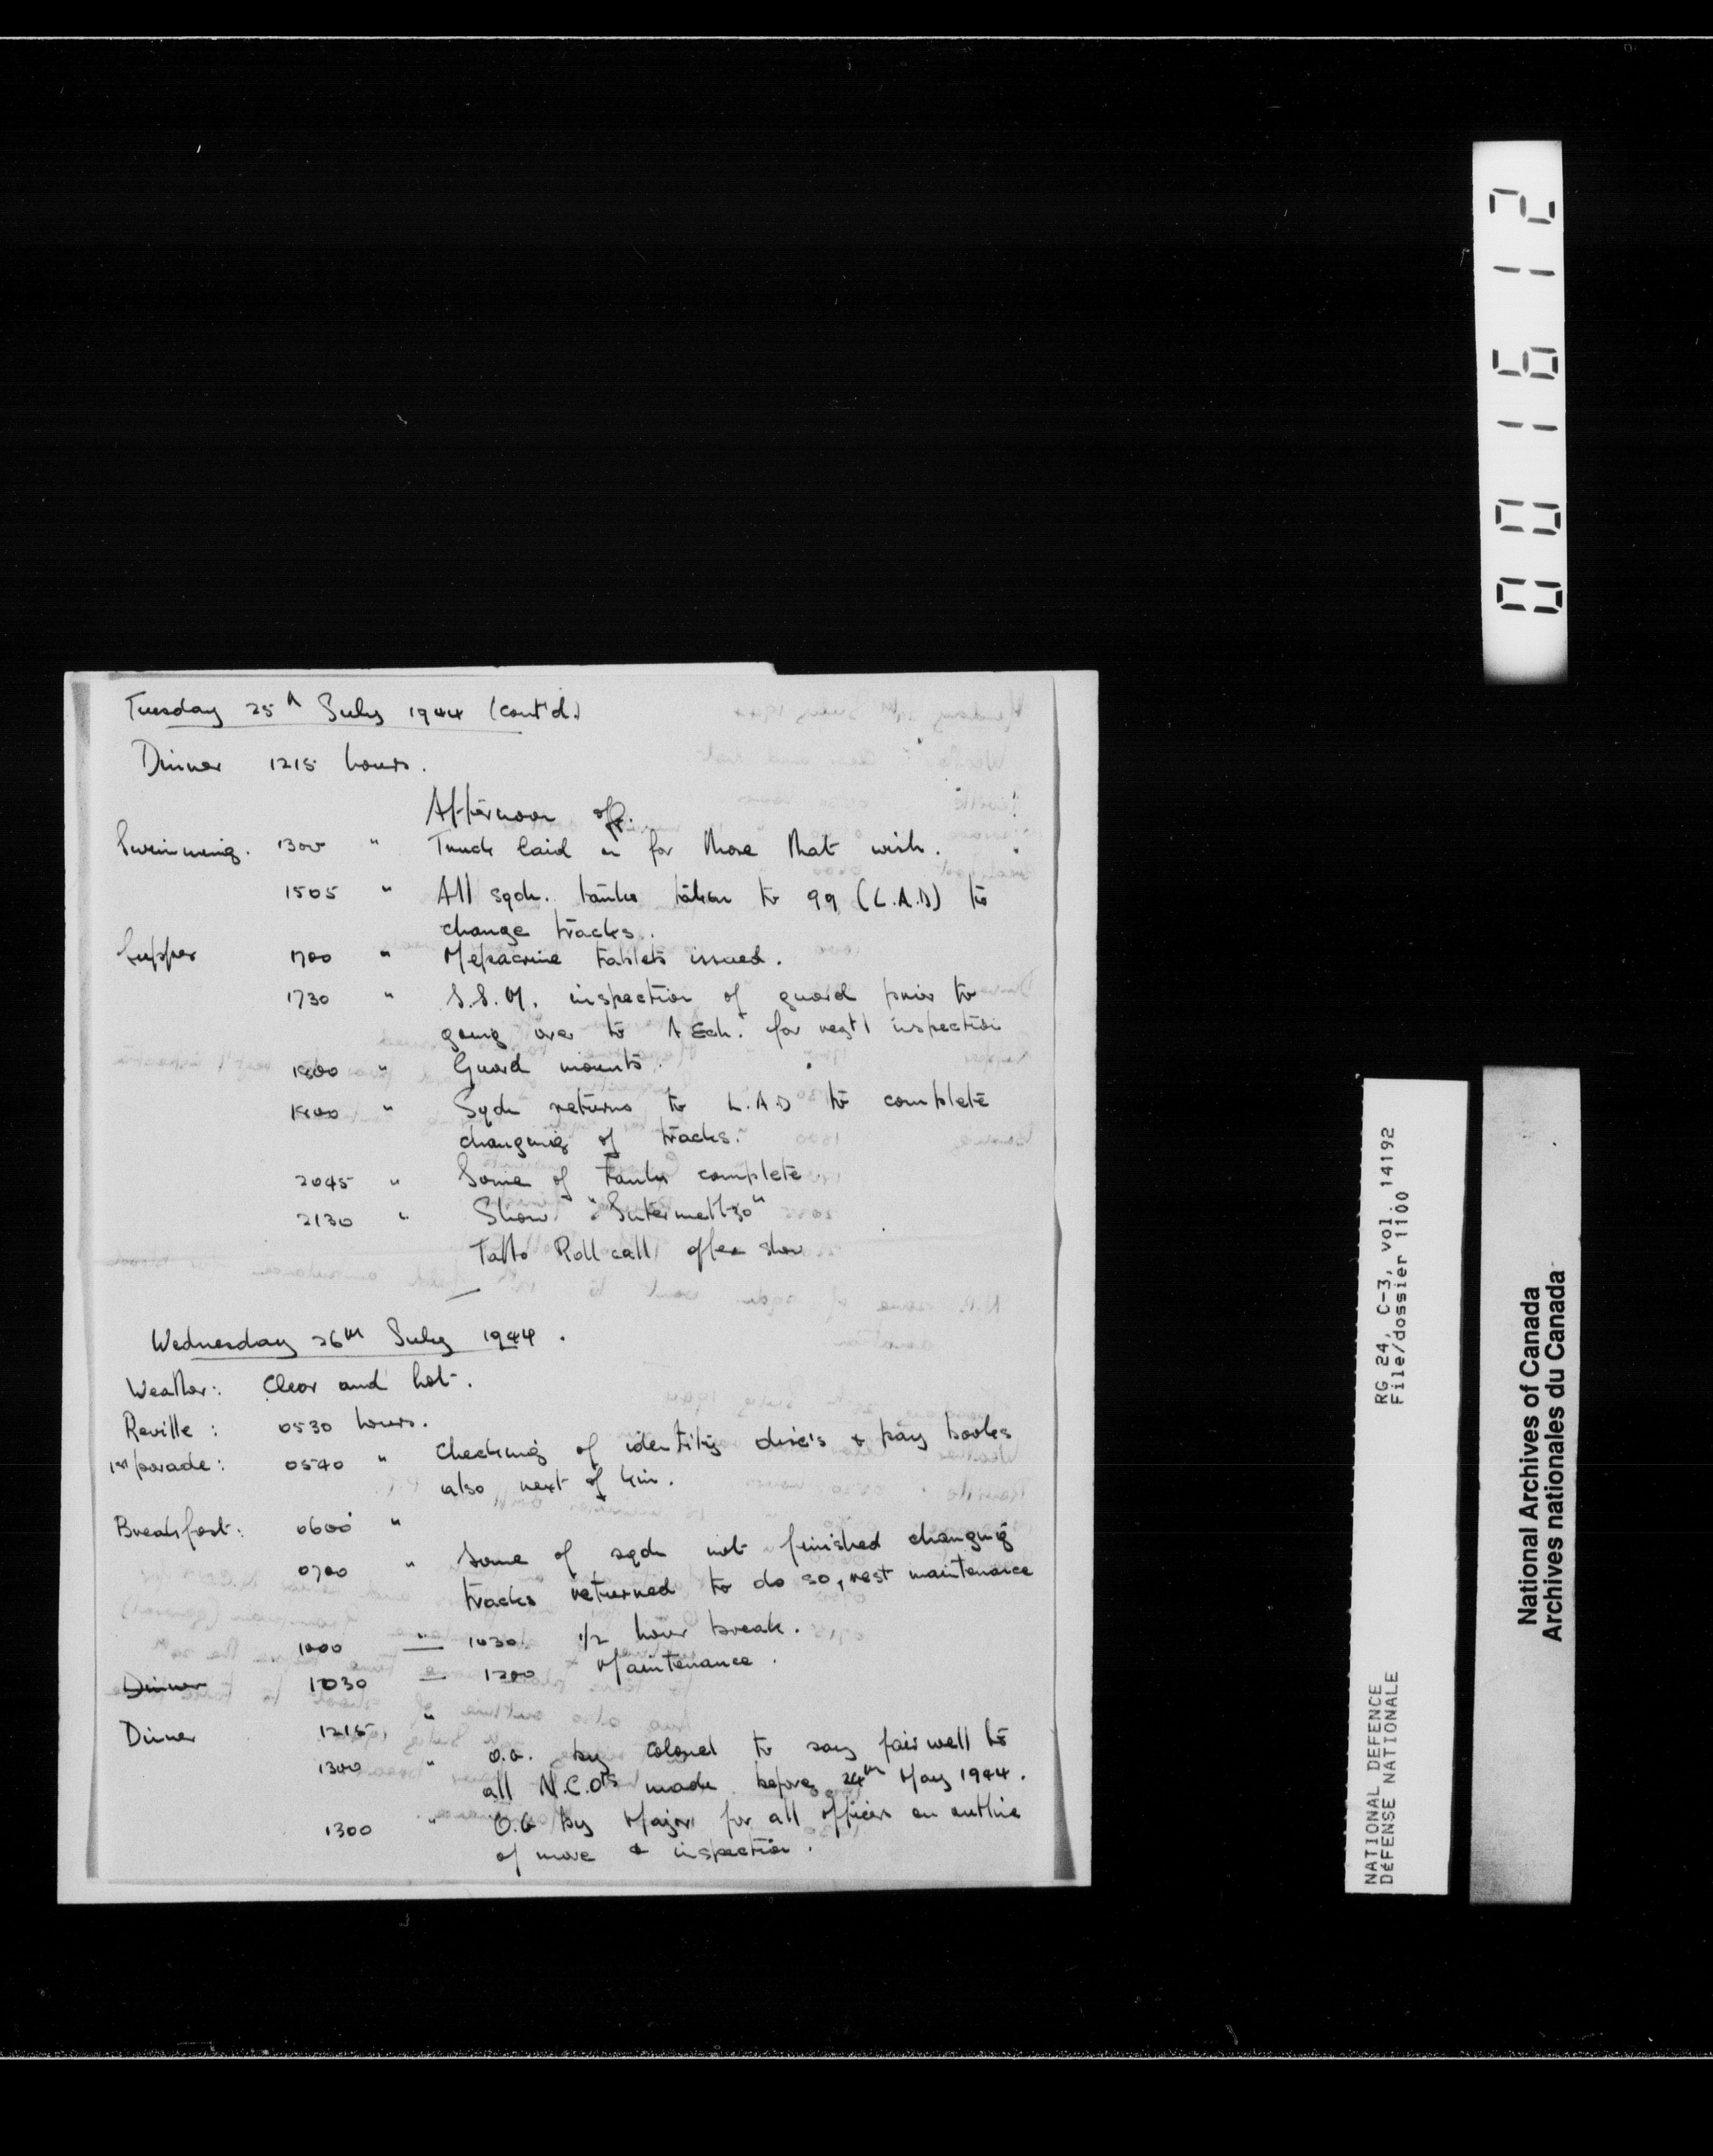 Tuesday 25th July 1944 (cont'd.)
Dinner 1215 hours.
Afternoon off.
Swimming. 1300 " Truck laid on for those that wish.
1505 " All sqdn. tanks taken to 99 (L.A.D) to
change tracks.
Supper 1700 " Mepacrine tablets issued.
1730 " S.S.M. inspection of guard prior to
going over to A Ech. for regt'l inspection
1800 " Guard mounts.
1800 " Sqdn returns to L.A.D to complete
changing of tracks.
2045 " Some of tanks complete
2130 " Show "Intermett30"
Tatto Roll call after show
Wednesday 26th July 1944.
Weather: Clear and hot.
Reville: 0530 hours.
1st parade: 0540 " Checking of identity disc's & pay books
also next of kin.
Breakfast: 0600 "
0700 " Some of sqdn not finished changing
tracks returned to do so, rest maintenance
1000 " — 1030 1/2 hour break.
Dinner 1030 — 1200 Maintenance.
Dinner 1215 "
1300 " O.G. by Colonel to say fairwell to
all N.C.O's made before 24th May 1944.
1300 " O.G by Major for all officers on outline
of move & inspection.
001612
RG 24, C-3, vol. 14192
File/dossier 1100
NATIONAL DEFENCE
DéFENSE NATIONALE
National Archives of Canada
Archives nationales du Canada